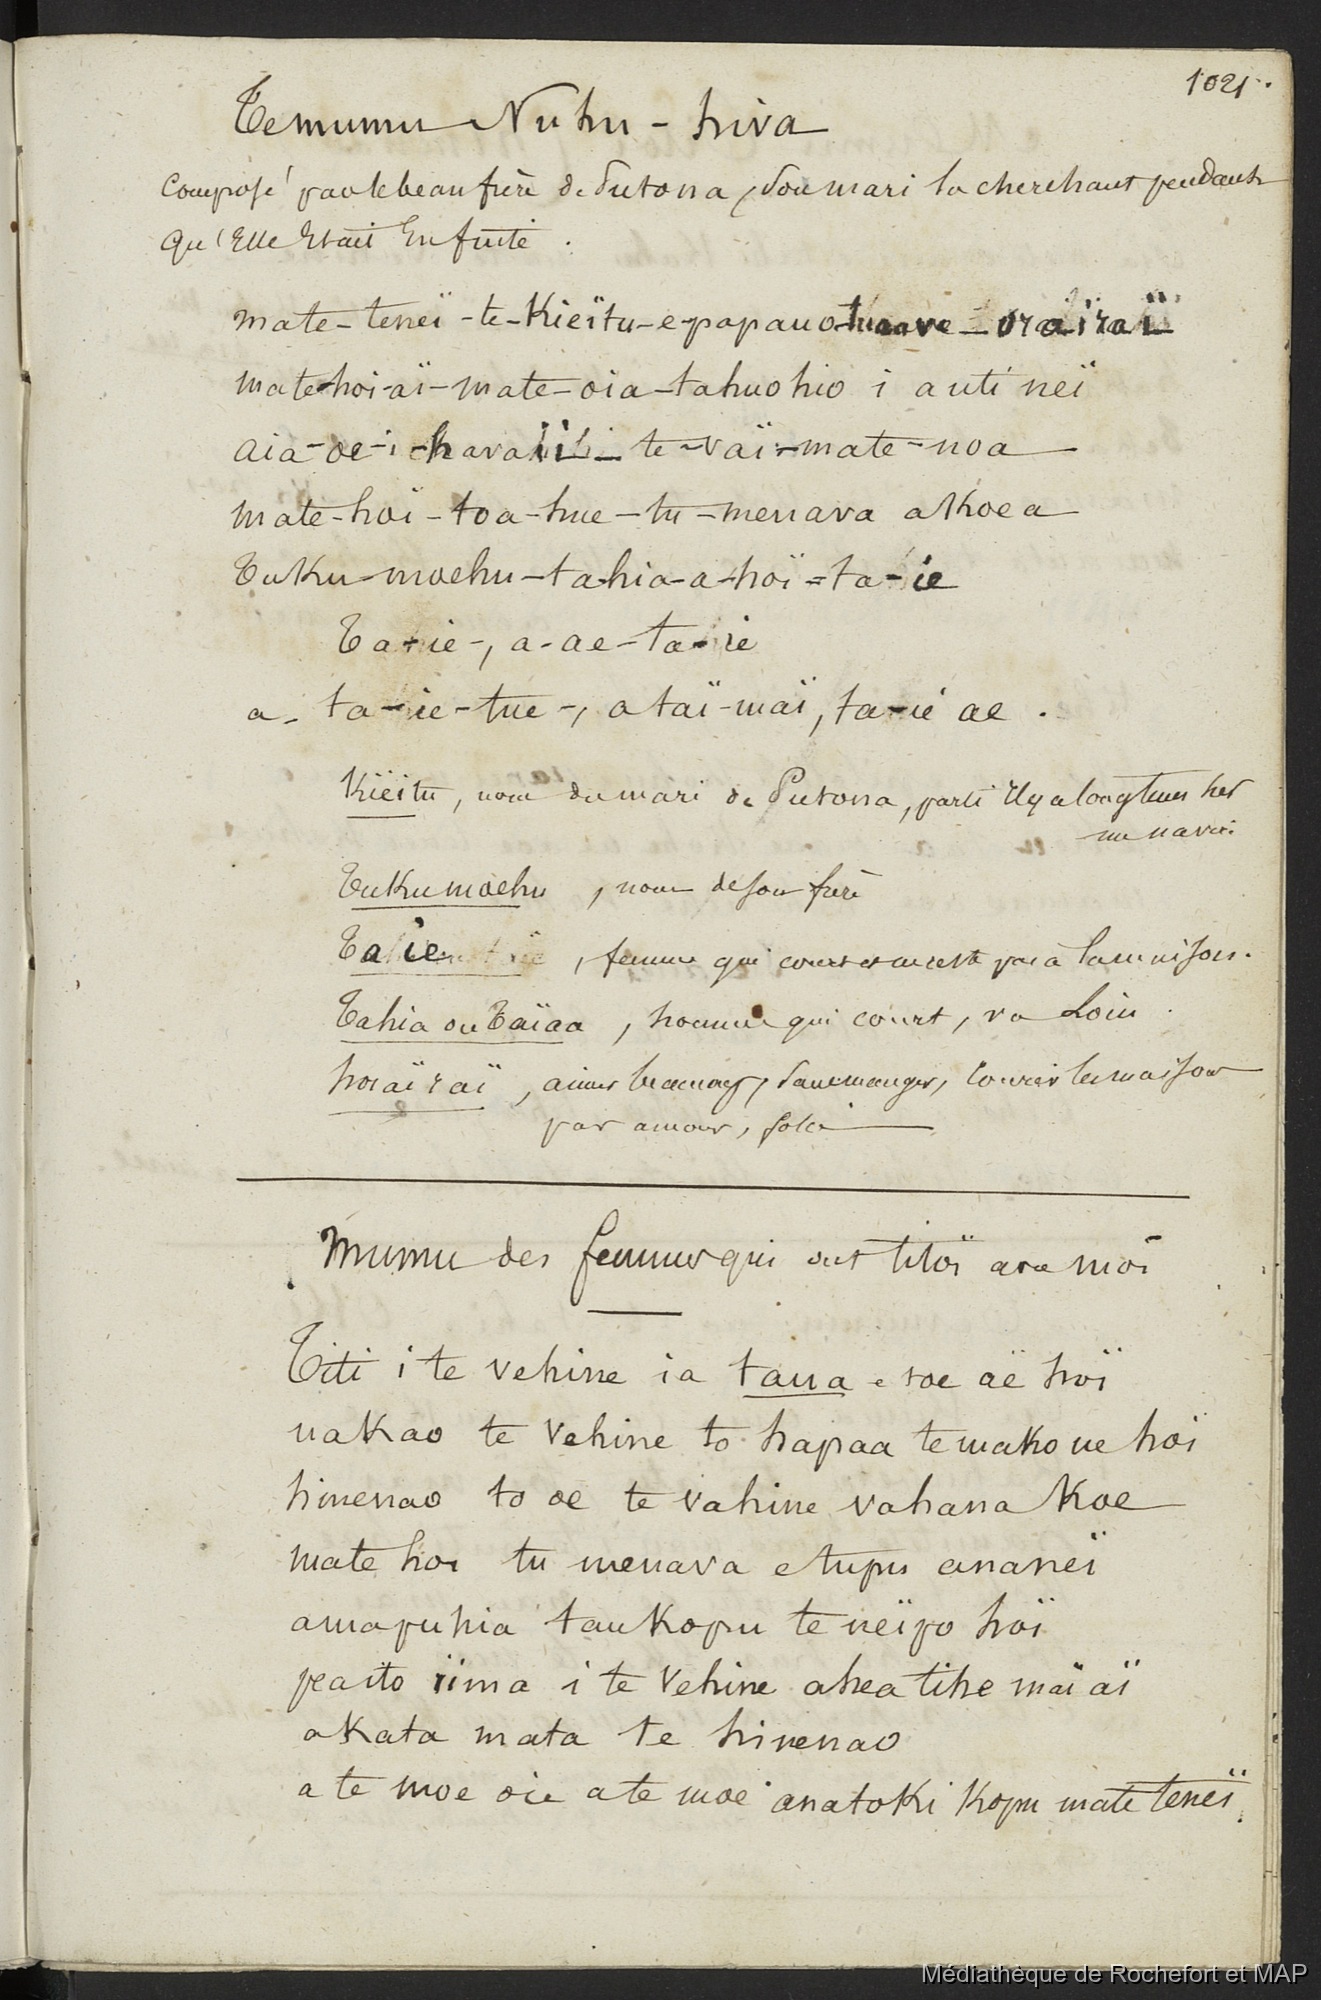 1021.
Temumu Nuhu-hiva
Composé par le beau frère de Putona, son mari la cherchant pendant
qu'Elle Etait En fuite.
mate-teneï-te-Kieïtu-e-papauo-tuaave-oraïraï
mate-hoi-aï-mate-oia-tahuohio i auti neï
aia-oe-i-havaiiï-te-vaï-mate-noa
mate-hoï-toa-hue-tu-menava akoea
Tuku-moehu-tahia-a-hoï=ta-ie
Ta-ie-, a-ae-ta-ie
a- ta-ie-tue-, a taï-maï, ta-ié ae.
Kiëitu, nom du mari de Putona, parti Il y a longtems sur
un navire
Tukumoehu, nom de son frère
Taïe, femme qui court et ne reste pas à la maison.
Tahia ou Taïaa, homme qui court, va Loin.
horaïraï, aimer beaucoup, sans manger, courir les maisons
par amour, folie
Mumu des femmes qui ont titoï ave moi
Titi i te vehine ia taua e roe aë hoï
uakao te vehine to hapaa te mako ue hoï
hinenao to oe te vahine vahana Koe
mate hoi tu menava e tupu ananeï
amapuhia tau Kopu te neïpo hoï
peaito iima i te vehine ahea tihe maï aï
a Kata mata te hinenao
a te moe oie a te moe anatoki Kopu mate teneï.
Médiathèque de Rochefort et MAP